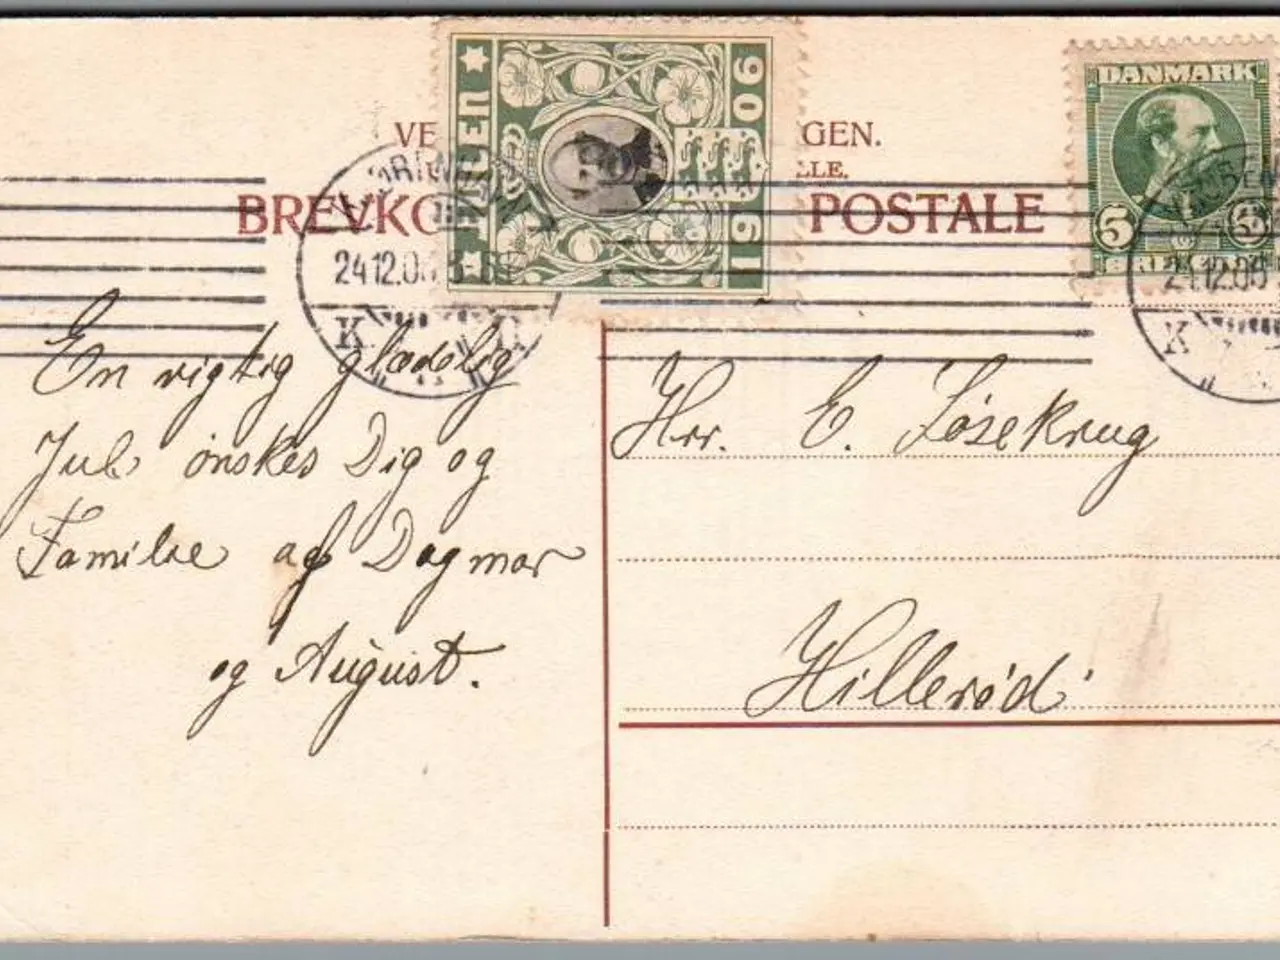 VE GEN.
LLE.
BREVKO POSTALE
JULEN
1906
DANMARK
5
24.12.06
K
24.12.06
K
En rigtig glædelig
Jul ønskes Dig og
Familie af Dagmar
og August.
Hrr. E. Løsekrug
Hillerød